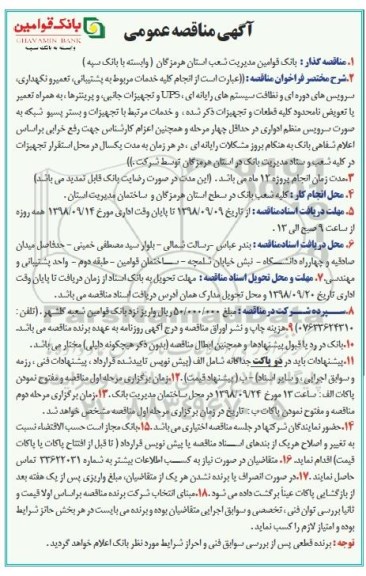 بانک قوامین
GHAVAMIN BANK
وابسته به بانک سپه
آگهی مناقصه عمومی
۱. مناقصه گذار : بانک قوامین مدیریت شعب استان هرمزگان ( وابسته با بانک سپه )
۲.شرح مختصر فراخوان مناقصه :((عبارت است از انجام کلیه خدمات مربوط به پشتیبانی، تعمیر و نگهداری،
سرویس های دوره ای و نظافت سیستم های رایانه ای ، UPS و تجهیزات جانبی، و پرینترها ، به همراه تعمیر
یا تعویض نامحدود کلیه قطعات و تجهیزات ذکر شده ، و خدمات مرتبط با تجهیزات و بستر پسیو شبکه به
صورت سرویس منظم ادواری در حداقل چهار مرحله و همچنین اعزام کارشناس جهت رفع خرابی براساس
اعلام شفاهی بانک به هنگام بروز مشکلات رایانه ای ، در هر زمان به مدت یکسال در محل استقرار تجهیزات
در کلیه شعب و ستاد مدیریت بانک در استان هرمزگان توسط شرکت.))
۳.مدت زمان انجام پروژه ۱۲ ماه می باشد . (این مدت در صورت رضایت بانک قابل تمدید می باشد)
۴. محل انجام کار : کلیه شعب بانک در سطح استان هرمزگان و ساختمان مدیریت استان .
۵. مهلت دریافت اسناد مناقصه : از تاریخ ۱۳۹۸/۰۹/۰۹ تا پایان وقت اداری مورخ ۱۳۹۸/۰۹/۱۴ همه روزه
از ساعت ۹ صبح الی ۱۳.
۶. محل دریافت اسناد مناقصه : بندرعباس -رسالت شمالی - بلوار سید مصطفی خمینی - حدفاصل میدان
صادقیه و چهارراه دانشگاه - نبش خیابان - ساختمان قوامین - طبقه دوم - واحد پشتیبانی و
مهندسی ۷. مهلت و محل تحویل اسناد مناقصه : مهلت تحویل به بانک اسناد از زمان دریافت تا پایان وقت
اداری تاریخ ۱۳۹۸/۰۹/۲۰ و محل تحویل مدارک همان آدرس دریافت اسناد مناقصه می باشد.
۸. سپرده شرکت در مناقصه : مبلغ ۵۰/۰۰۰/۰۰۰ ریال واریز نزد بانک قوامین شعبه گلشهر . (تلفن :
۰۷۶۳۳۶۲۴۳۱۰) ۹.هزینه چاپ و نشر اوراق مناقصه و درج آگهی روزنامه به عهده برنده مناقصه می باشد.
۱۰.بانک در رد یا قبول پیشنهادها و همچنین ابطال مناقصه (بدون ذکر هیچگونه دلیلی) مختار می باشد.
۱۱.پیشنهادات باید در دو پاکت جداگانه شامل الف (پیش نویس تاییدشده قرارداد ، پیشنهادات فنی ، رزمه
و سوابق اجرایی و سایر اسناد) ب. (پیشنهاد قیمت). ۱۲.زمان برگزاری مرحله اول مناقصه و مفتوح نمودن
پاکات الف: ساعت ۱۲ مورخ ۱۳۹۸/۰۹/۲۴ در محل ساختمان مدیریت بانک .۱۳.زمان برگزاری مرحله دوم
مناقصه و مفتوح نمودن پاکات ب: تاریخ در زمان برگزاری مرحله اول مناقصه مشخص خواهد شد .
۱۴.حضور نمایندگان شرکتها در جلسه مناقصه اختیاری می باشد.۱۵.بانک مجاز است حسب الاقتضاء نسبت
به تغییر و اصلاح هریک از بندهای اسناد مناقصه یا پیش نویس قرارداد ( تا قبل از افتتاح پاکات یا پاکات
قیمت) اقدام نماید. ۱۶. متقاضیان در صورت نیاز به کسب اطلاعات بیشتر به شماره ۳۳۶۲۲۰۳۱ تماس
حاصل نمایند .۱۷.در صورت انصراف یا برنده نشدن هر یک از متقاضیان، مبلغ واریزی پس از یک هفته بعد
از بازگشایی پاکات عیناً برگشت داده می شود .۱۸.مبنای انتخاب شرکت برنده مناقصه براساس اولا قیمت و
ثانیا بررسی توان فنی ، تخصصی و سوابق اجرایی متقاضیان بوده و برنده می بایست در هر بخش حائز شرایط
بوده و امتیاز لازم را کسب نماید.
توجه : برنده قطعی پس از بررسی سوابق فنی و احراز شرایط مورد نظر بانک اعلام خواهد گردید .